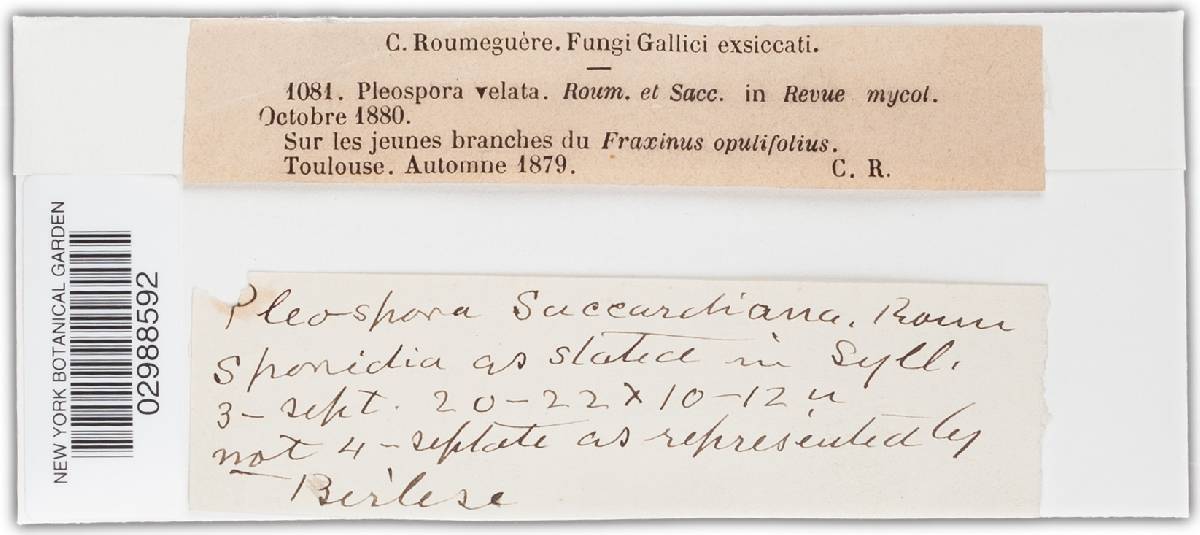 C. Roumeguère. Fungi Gallici exsiccati.
1081. Pleospora velata. Roum. et Sacc. in Revue mycol.
Octobre 1880.
Sur les jeunes branches du Fraxinus opulifolius.
Toulouse. Automne 1879. C. R.
NEW YORK BOTANICAL GARDEN
02988592
Pleospora Saccardiana. Roum
Sporidia as stated in Syll.
3-sept. 20-22 x 10-12 u
not 4-septate as represented by
Berlese